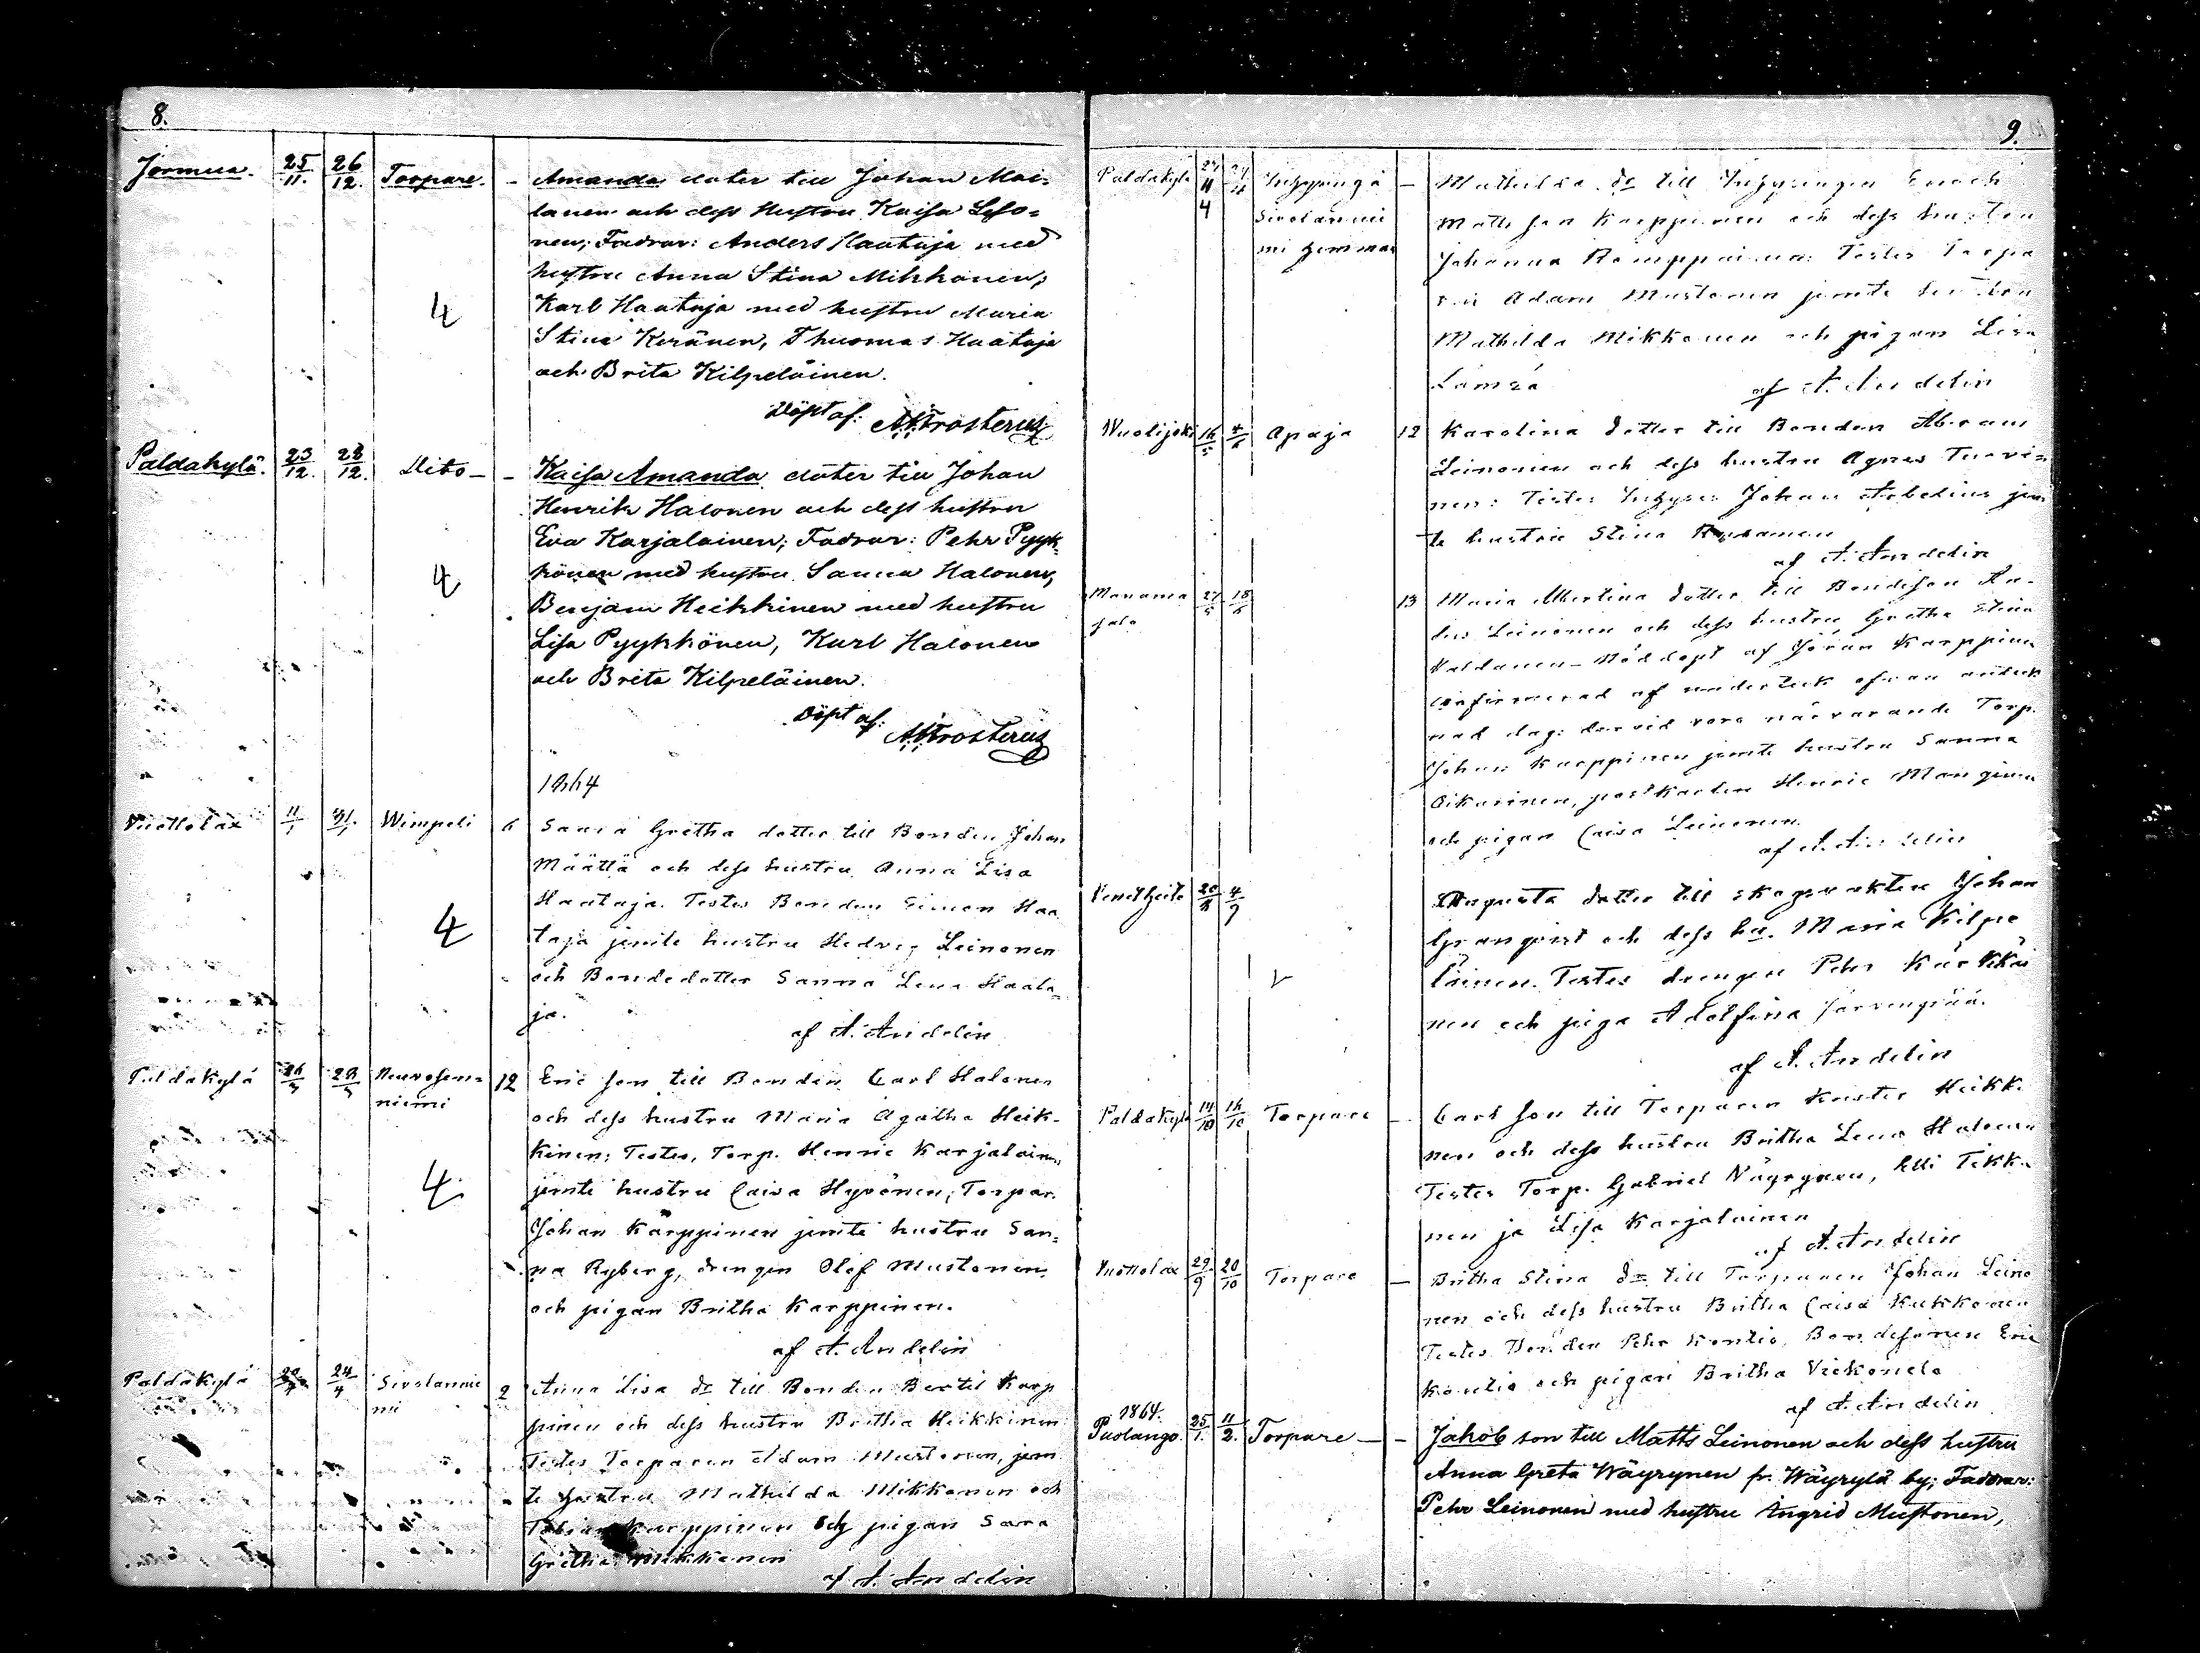 8.
Jormua. 25/11. 26/12. Torpare. - Amanda dåter till Johan Moi-
lanen och dess Hustru Kaisa Leso-
nen; Fadrar: Anders Haataja med
hustru Anna Stina Mikkonen;
Karl Haataja med hustru Maria
4
Stina Keränen, Thuomas Haataja
och Brita Kilpeläinen.
Döpt af: A.Frosterus
Paldakylä. 23/12. 28/12. Dito - - Kaisa Amanda dåter till Johan
Henrik Halonen och dess hustru
Eva Karjalainen; Fadrar: Pehr Pyyk-
könen med hustru Sanna Halonen,
4
Benjam Heikkinen med hustru
Lisa Pyykkönen, Karl Halonen
och Brita Kilpeläinen.
Döpt af:
A.Frosterus
1864
Vuottolax 11/1 31/1 Wimpeli 6 Saara Gretha dotter till Bonden Johan
Määttä och dess hustru Anna Lisa
Haataja. Testes Bonden Simon Haa
4
taja jemte hustru Hedvig Leinonen
och Bondedotter Sanna Lena Haata-
ja.
af A. Andelin
Paldakylä 28/3 Neuvosen- 12 Eric son till Bonden Carl Halonen
niemi
och dess hustru Maria Agatha Heik-
kinen; Testes, Torp. Henric Karjalainen
4
jemte hustru Caisa Hyvönen; Torpar.
Johan Karppinen jemte hustru San-
na Ryberg, drengen Olof Mustonen
och pigan Britha Karppinen.
af A. Andelin
Paldakylä 24/4 Sivolannie 2 Anna Lisa dr till Bonden Bertil Karp
mi
pinen och dess hustru Britha Heikkinen
Testes Torparen Adam Mustonen, jem
te hustru Mathilda Mikkonen och
Tobias Karppinen och pigan Sara
Gretha Mikkonen
af A. Andelin
9.
Paldakylä Inhysinga - Mathilda dr till Inhysingen Enoch
Sivolannie
Matts son Karppinen och dess hustru
mi hemman
Johanna Romppainen: Testes Torpa
ren Adam Mustonen jemte hustrun
Mathilda Mikkonen och pigan Lisa
Lämsä af A. Andelin
Wuolijoki 16/5 Apaja 12 Karolina dotter till Bonden Abram
Leinonen och dess hustru Agnes Tervo-
nen: Testes Inhyses Johan Abelius jem
te hustru Stina
af A. Andelin
Manamansalo 27/5 18/6 13 Maria Albertina dotter till Bondeson An-
ders Leinonen och dess hustru Gretha Stina
Valdanen - Nöddöpt af Jöran Karppinen
confirmerad af underteck ofvan anteck
nad dag: dervid voro närvarande Torp.
Johan Karppinen jemte hustru Sanna
Oikarinen, postkarlen Henric Manginen
och pigan Caisa Leinonen.
af A. Andelin
Venetheito 20/8 4/9 Augusta dotter till skogvakten Johan
Granqvist och dess hu. Maria Kilpe
läinen. Testes drengen Pehr Kärkkäi
nen och piga Adolfina Järvenpää.
af A. Andelin
Paldakylä 14/10 16/10 Torpare - Carl son till Torparen Krister Heikki
nen och dess hustru Britha Lena Halonen
Testes Torp. Gabriel Väyrynen, Elli Tikka
nen ja Lisa Karjalainen
af A. Andelin
Vuottolax 29/9 20/10 Torpare - Britha Stina dr till Torparen Johan Leino
nen och dess hustru Britha Caisa Kukkonen
Testes Bonden Pehr Kontio, Bondesonen Eric
Kontio och pigan Britha Viekonela
af A. Andelin
1864.
Puolango 25/1. 11/2. Torpare - - Jakob son till Matts Leinonen och dess hustru
Anna Greta Wäyrynen fr. Wäyrylä by; Fadrar:
Pehr Leinonen med hustru Ingrid Mustonen,